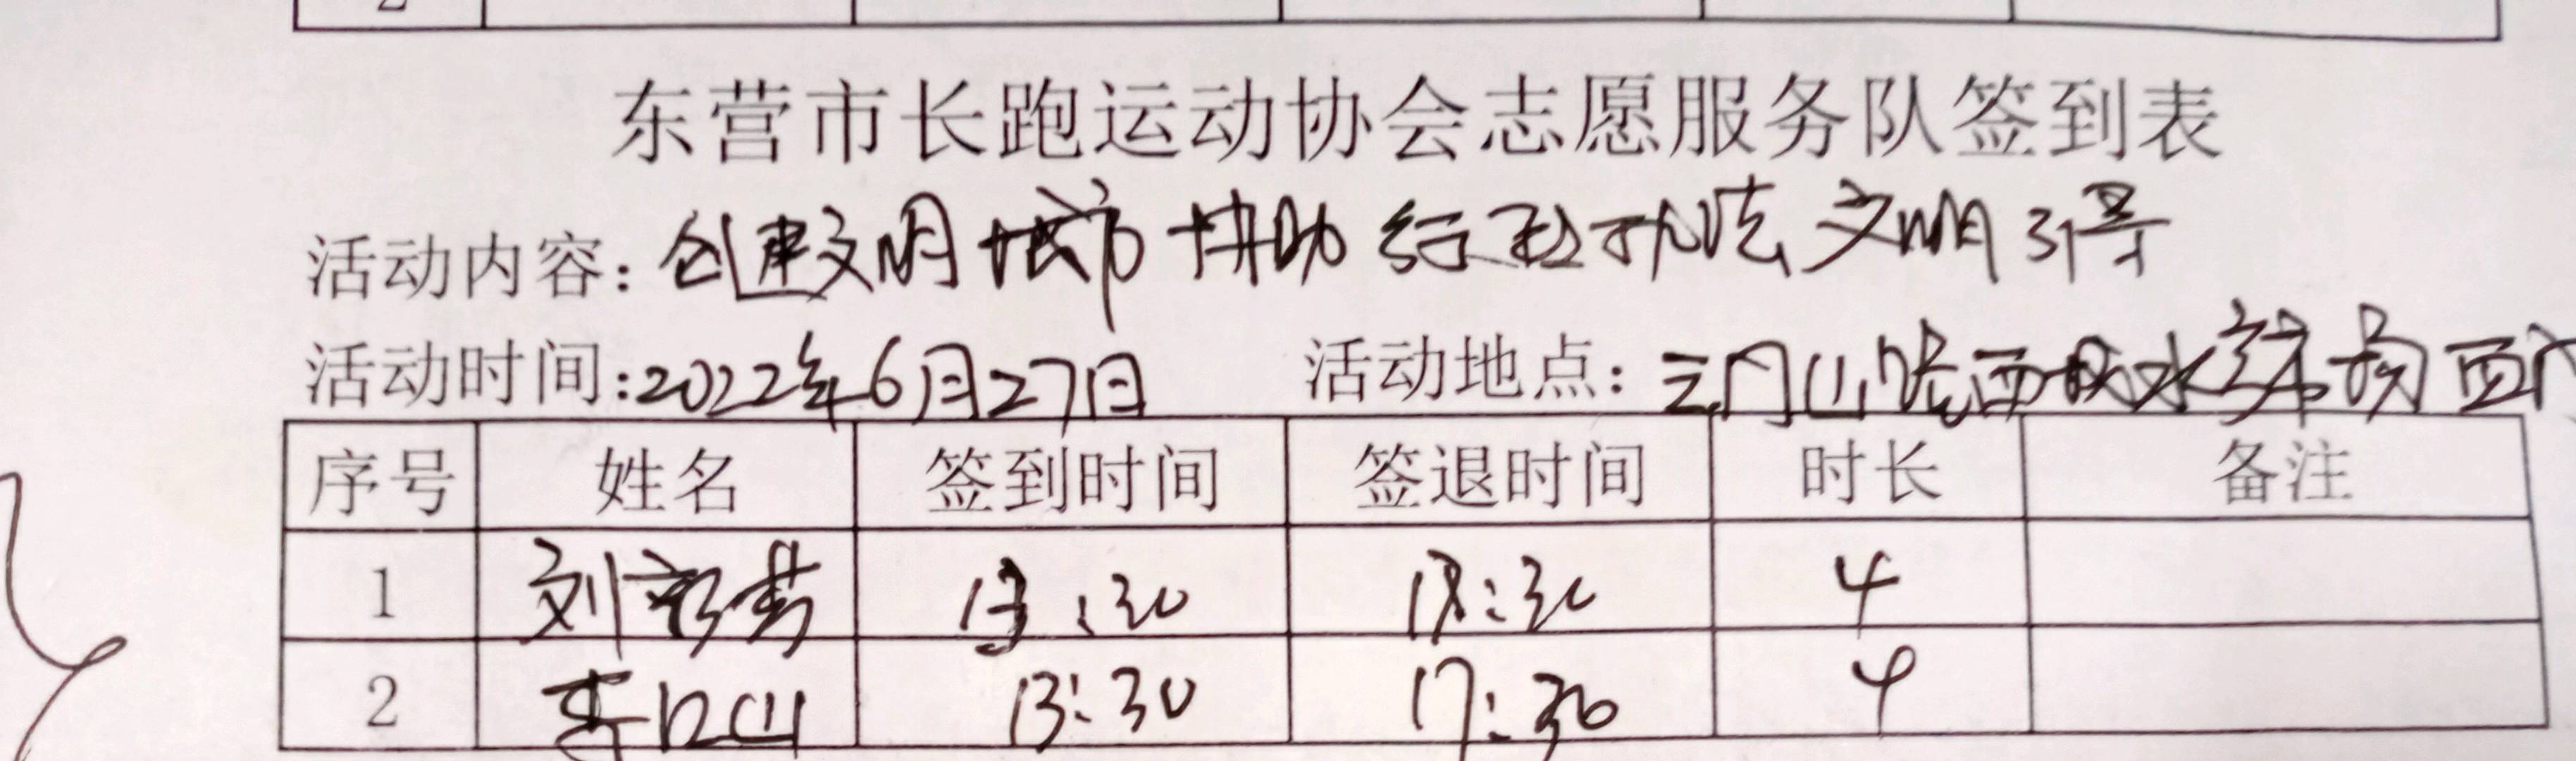 2
东营市长跑运动协会志愿服务队签到表
活动内容：创建文明城市 协助行政执法文明引导
活动时间：2022年6月27日 活动地点：三门山路西 水 西门
序号 姓名 签到时间 签退时间 时长 备注
1 刘 13:30 18:30 4
2 李 山 13:30 17:30 4